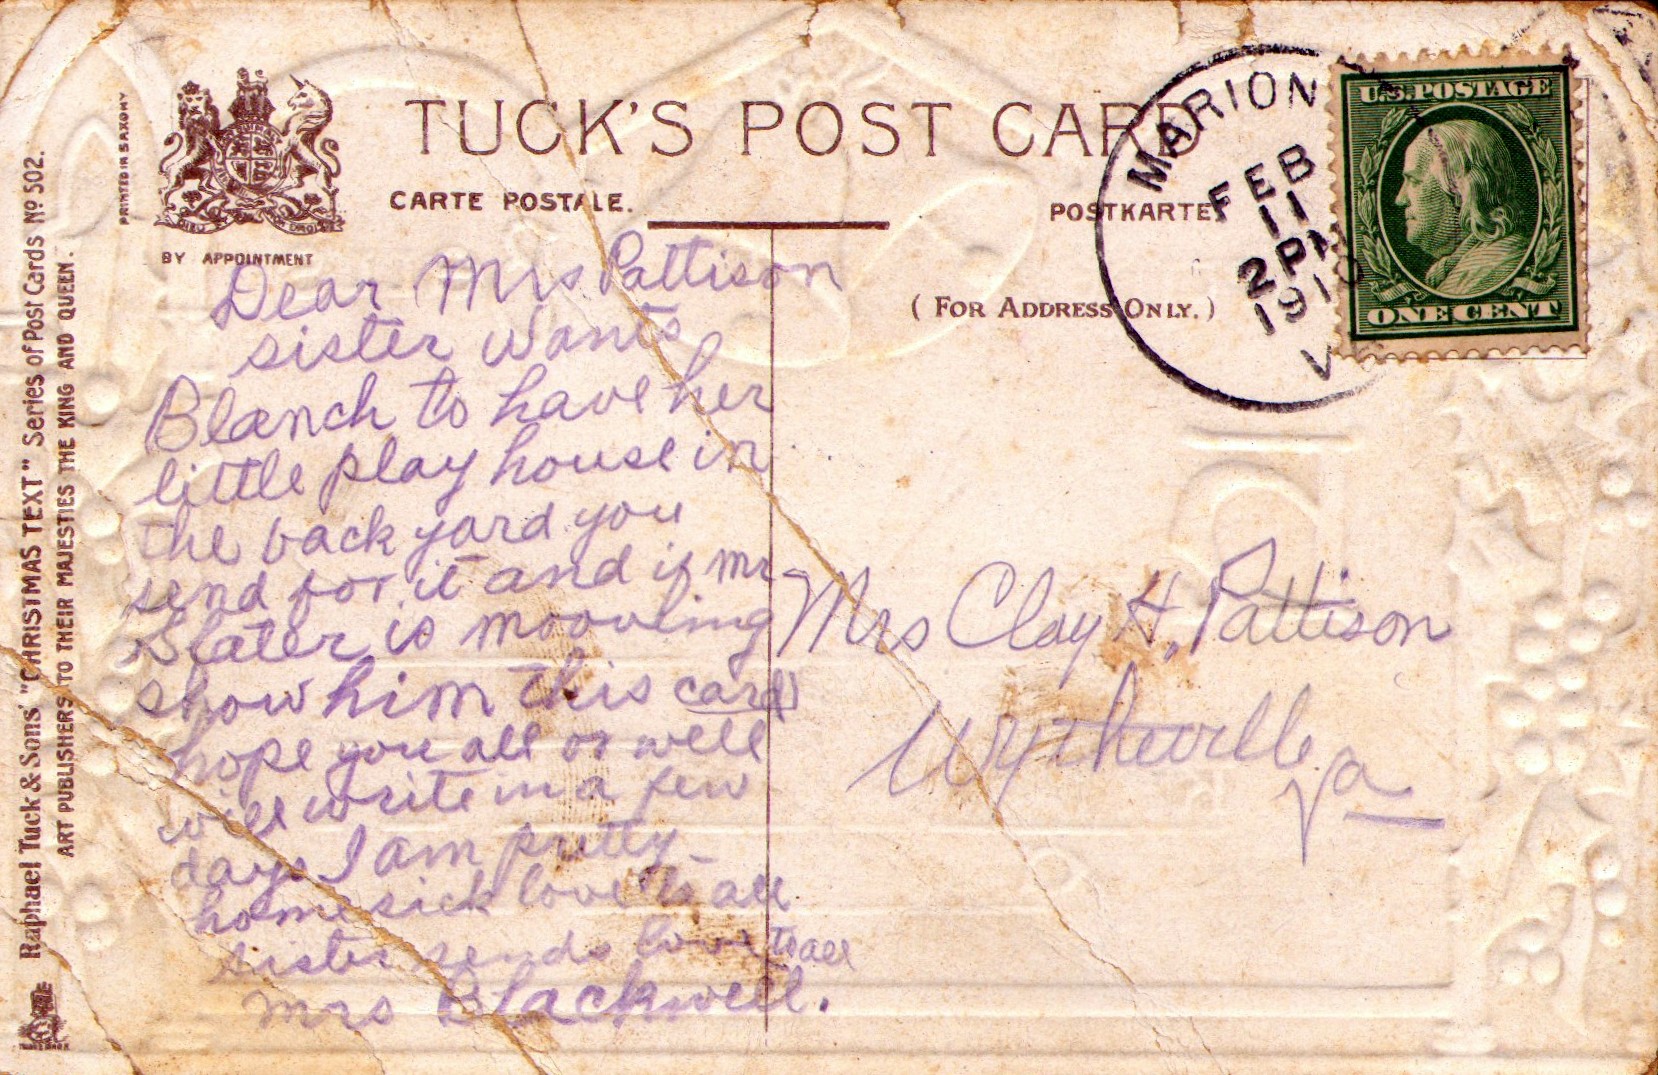 TUCK'S POST CARD
CARTE POSTALE.
POSTKARTE.
BY APPOINTMENT
(FOR ADDRESS ONLY.)
PRINTED IN SAXONY
Raphael Tuck & Sons' "CHRISTMAS TEXT" Series of Post Cards No 502.
ART PUBLISHERS TO THEIR MAJESTIES THE KING AND QUEEN.
MARION
FEB
11
2 PM
1910
V
U.S. POSTAGE
ONE CENT
Dear Mrs Pattison
sister wants
Blanch to have her
little play house in
the back yard you
send for it and if Mr
Slater is mooving
show him this card
hope you all or well
will write in a few
days I am pretty
homesick love to all
sister sends love to all
Mrs Blackwell.
Mrs Clay H, Pattison
Wytheville
Va